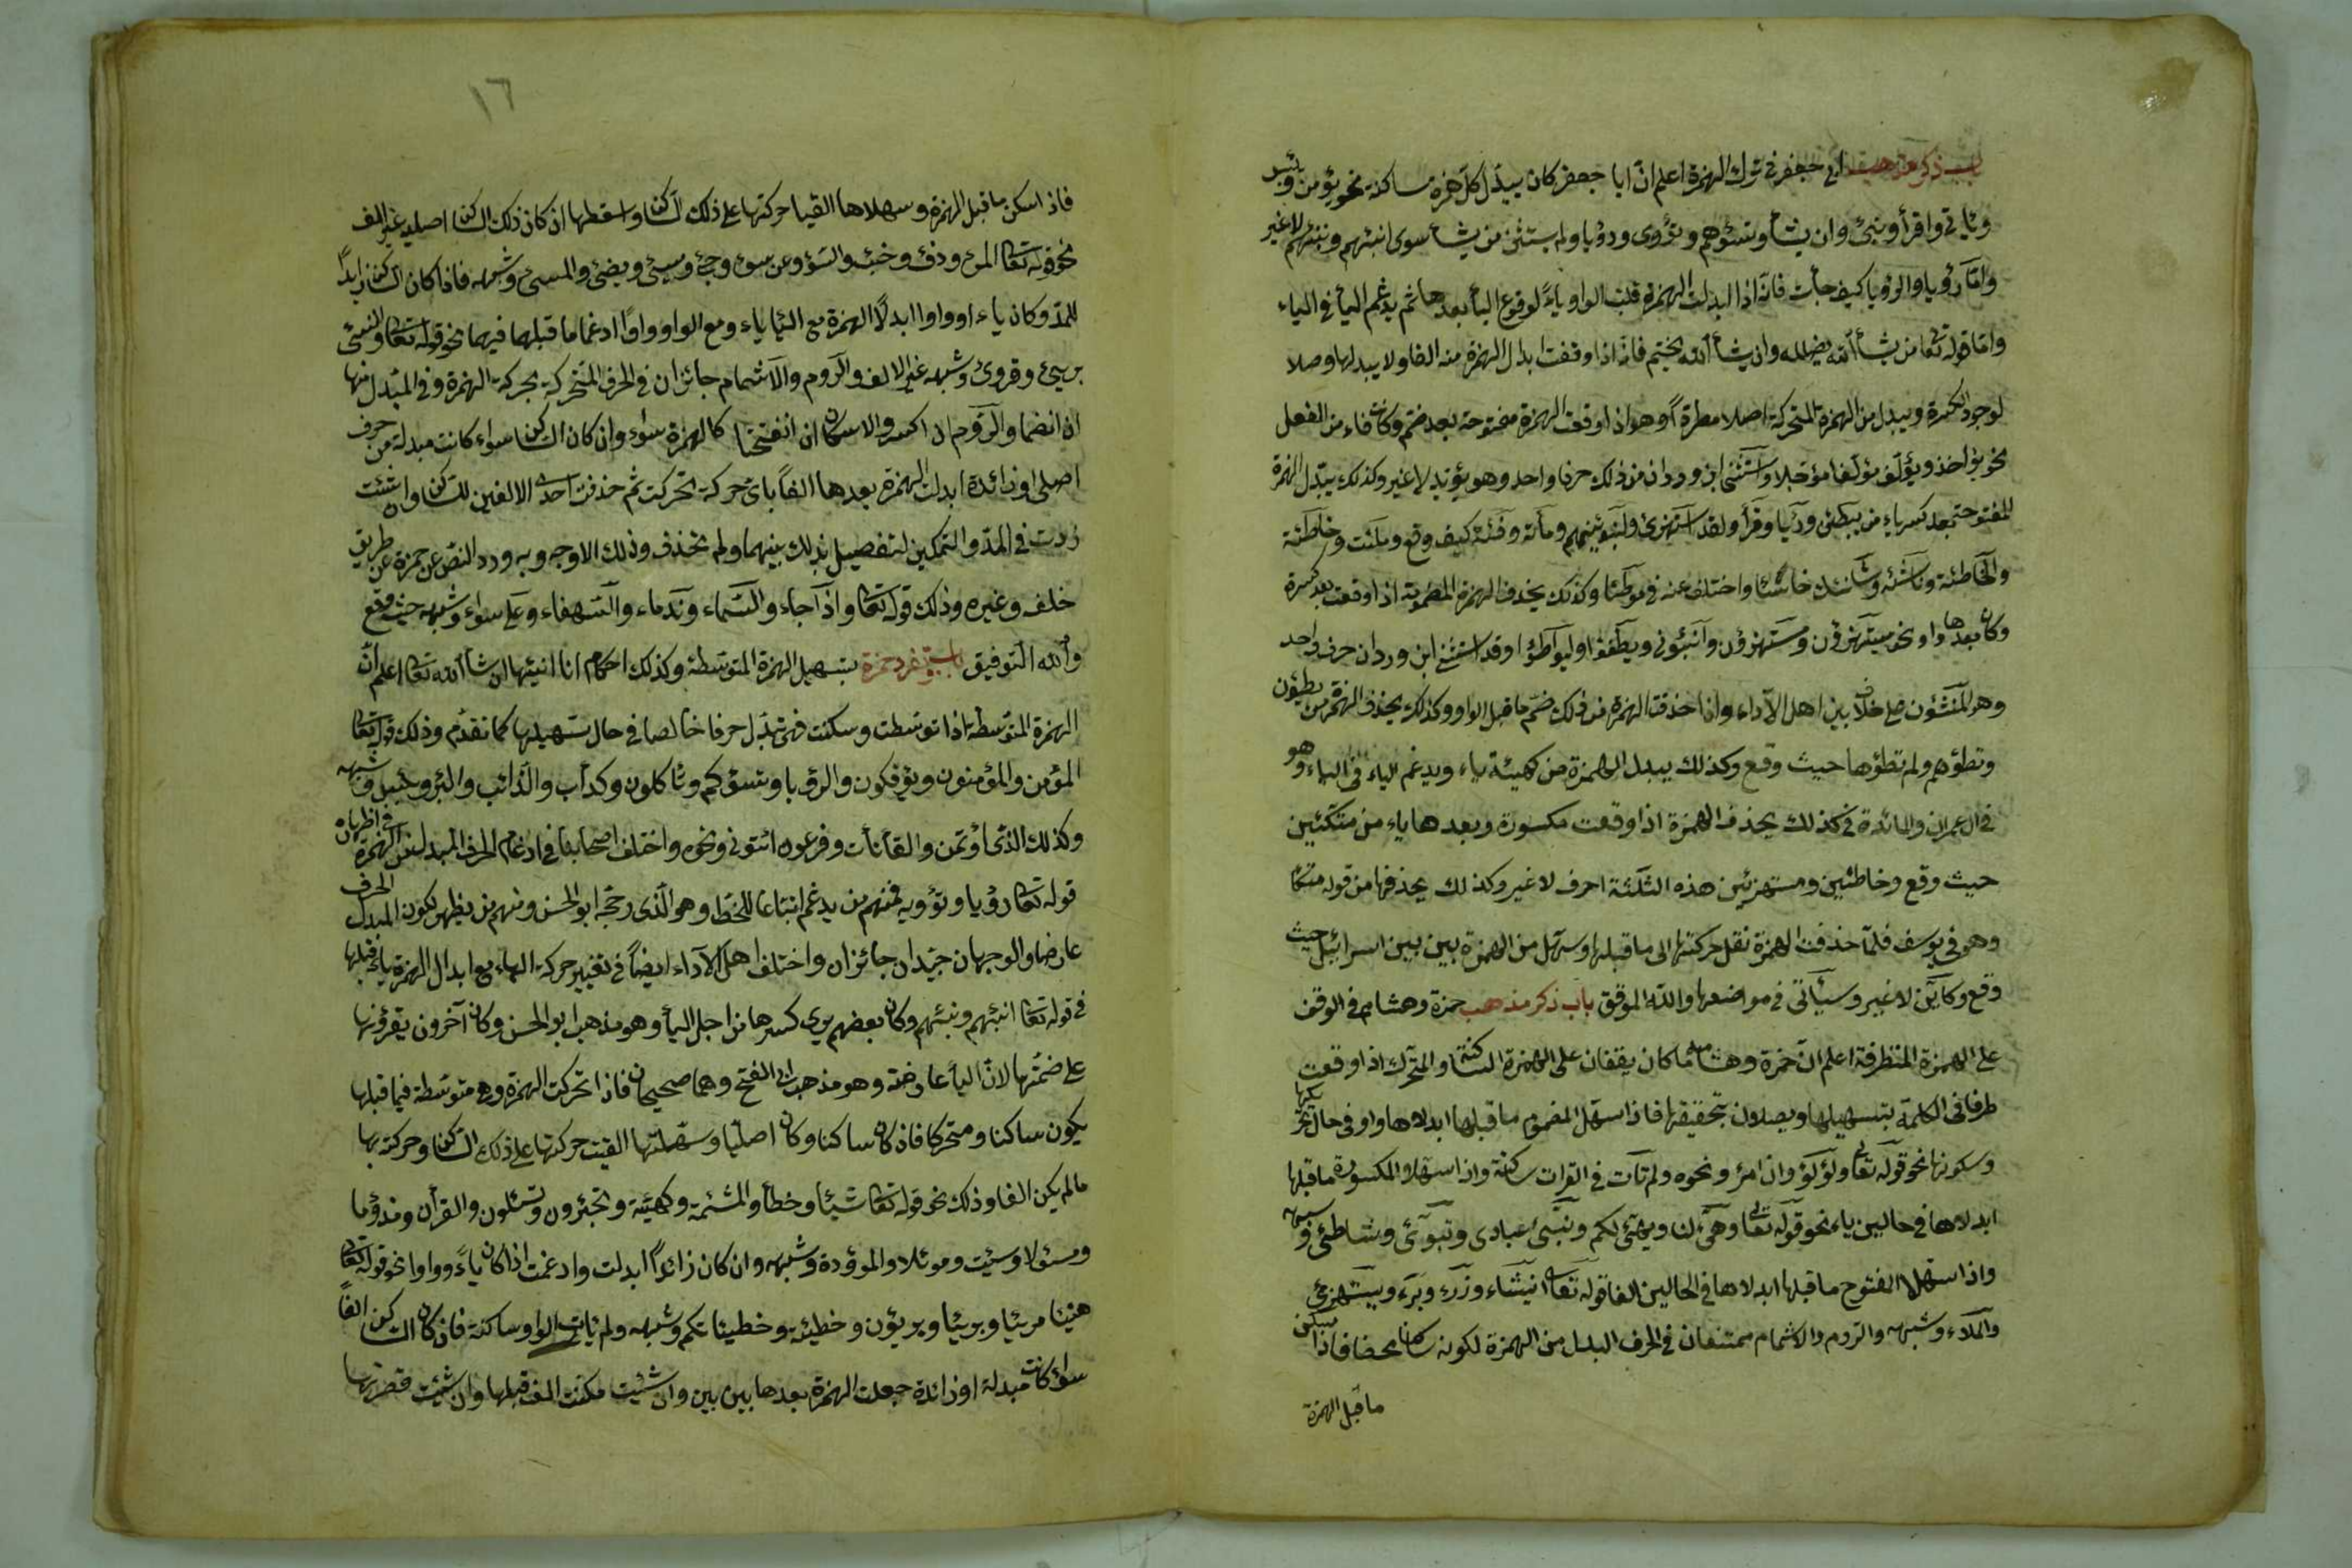 باب ذكر مذهب ابي جعفر في ترك الهمزة اعلم ان ابا جعفر كان يبدل كل همزة ساكنة نحو يؤمن وبئس
وياتي واقرأ ونبئ وان يشأ وتسؤهم وتؤوي ورؤيا ولم يستثن من يشأ سوى انبئهم ونبئهم لا غير
وامّا رؤيا والرؤيا كيف جأت فانه اذا ابدلت الهمزة قلبت الواو ياءً لوقوع اليأ بعدها ثم يدغم اليأ في الياء
وامّا قوله تعا من يشأ الله يضلله وان يشأ الله يختم فانه اذا وقفت ابدل الهمزة منه الفا ولا يبدلها وصلا
لوجود الكسرة ويبدل من الهمزة المتحركة اصلا مطردًا وهو اذا وقعت الهمزة مفتوحة بعد ضم وكانت فاء من الفعل
نحو يؤاخذ ويؤلف مؤلفا مؤجلا واستثنى ابن وردان من ذلك حرفا واحد وهو يؤيد لا غير وكذلك يبدل الهمزة
المفتوحة بعد كسر ياء من ليبطئن ورئيا وقرأ ولقد استهزئ ولنبوئنهم ومائة وفئة كيف وقع وملئت وخاطئة
والخاطئة وناشئة وشانئك خاسئا واختلف عنه في موطئا وكذلك يحذف الهمزة المضمومة اذا وقعت بعد كسرة
وكان بعدها واو نحو يستهزؤن ومستهزؤن وانبئوني ويطفئوا وليواطئوا وقد استثنى ابن وردان حرف واحد
وهو المنشئون على خلاف بين اهل الآداء واذا حذفت الهمزة من ذلك ضم ما قبل الواو وكذلك يحذف الهمزة من يطئون
وتطؤهم ولم تطؤها حيث وقع وكذلك يبدل الهمزة من كهيئة ياء ويدغم الياء في الياء وهو
في ال عمران والمائدة في كذلك يحذف الهمزة اذا وقعت مكسورة وبعدها ياء من متكئين
حيث وقع وخاطئين ومستهزئين هذه الثلثة احرف لا غير وكذلك يحذفها من قوله متكأ
وهو في يوسف فلمّا حذفت الهمزة نقل حركتها الى ما قبلها وسهّل من الهمزة بين بين اسرائيل حيث
وقع وكاين لا غير وسيأتي في مواضعها والله الموفق باب ذكر مذهب حمزة وهشام في الوقف
على الهمزة المتطرفة اعلم انّ حمزة وهشاما كان يقفان على الهمزة الساكنة والمتحرك اذا وقعت
طرفا في الكلمة بتسهيلها ويصلان بتحقيقها فاذا سهّل المضموم ما قبلها ابدلاها واو في حال تحركها
وسكونها نحو قوله تعالى ولؤلؤ وان امرؤ ونحوه ولم تات في القران ساكنة واذا سهّلا المكسورة ما قبلها
ابدلاها في حالين ياء نحو قوله تعالى وهيّئ لنا ويهيّئ لكم ونبّئ عبادي وتبوّئ وشاطئ وشبهه
واذا سهّلا المفتوح ما قبلها ابدلاها في الحالين الفا قوله تعا ان نشاء وذرء وبرء ويستهزئ
والملاء وشبهه والروم والاشمام ممتنعان في الحرف البدل من الهمزة لكونه ساكنا محضا فاذا سكن
ما قبل الهمزة
١٦
فاذا سكن ما قبل الهمزة وسهلاها القيا حركتها على ذلك الساكن واسقطها ان كان ذلك الساكن اصليه غير الف
نحو قوله تعا المرء ودفء وخبء والسوء وعن سوء وجئ وسيئ ويضئ والمسئ وشبهه فاذا كان الساكن زايدًا
للمدّ وكان ياء او واوا ابدلا الهمزة مع اليا ياء ومع الواو واوًا ادغما ما قبلهما فيهما نحو قوله تعا والنسئ
برئ وقروء وشبهه غير الالف والروم والاشمام جائزان في الحرف المتحركة بحركة الهمزة وفي المبدل منها
ان انضما والروم ان انكسر والاسكان ان انفتحا كالهمزة سواء وان كان الساكن سواء كانت مبدلة من حرف
اصلي او زائدة ابدلت الهمزة بعدها الفًا باي حركة تحركت ثم حذفت احدى الالفين للساكن وان شئت
زدت في المدّ والتمكين لتفصيل بذلك بينهما ولم تحذف وذلك الاوجه وبه ورد النصّ عن حمزة عن طريق
خلف وغيره وذلك قوله تعا واذا جاء والسماء وندماء والسفهاء وعلى سواء وشبهه حيث وقع
والله التوفيق باب تفرد حمزة بتسهيل الهمزة المتوسطة وكذلك احكام انا انبئها ان شأ الله تعا اعلم انّ
الهمزة المتوسطة اذا توسطت وسكنت فهي تبدل حرفا خالصا في حال تسهيلها كما تقدم وذلك قوله تعا
المؤمن والمؤمنون ويؤفكون والرؤيا وتسؤكم وتاكلون وكدأب والذائب والبئر وبئس وشبهه
وكذلك الذي اؤتمن والقأنات وفرعون ائتوني ونحوه واختلف اصحابنا في ادغام الحرف المبدل من الهمزة في اظهاره
قوله تعا رؤيا وتؤويه فمنهم من يدغم اتباعا للخط وهو الذي رجحه ابو الحسن ومنهم من يظهر لكون المبدل الحرف
عارضا والوجهان جيّدان جائزان واختلف اهل الآداء ايضاً في تغيير حركة الهاء مع ابدال الهمزة ياء قبلها
في قوله تعا انبئهم ونبئهم وكان بعضهم يرى كسرها من اجل اليأ وهو مذهب ابو الحسن وكان آخرون يقرؤنها
على ضمتها لانّ اليأ عارضة وهو مذهب ابي الفتح وهما صحيحان فاذا تحركت الهمزة وهي متوسطة فيما قبلها
يكون ساكنا ومتحركا فاذ كان ساكنا وكان اصليا وسهّلتها القيت حركتها على ذلك الساكن وحركته بها
مالم يكن الفا وذلك نحو قوله تعا شيئا وخطأ والمشئمة وكهيئة وتجئرون وتسئلون والقرأن ومذؤما
ومسئولا وسيئت وموئلا والموؤدة وشبهه وان كان زائدًا ابدلت وادغمت اذا كان ياءً وواوا نحو قوله تعا
هنيئا مريئا وبريئا وبريؤن وخطيئة وخطيئاتكم وشبهه ولم يات الواو ساكنة فاذ كان الساكن الفًا
سواء كانت مبدلة او زائدة جعلت الهمزة بعدها بين بين وان شئت مكنت الف قبلها وان شئت قصرتها